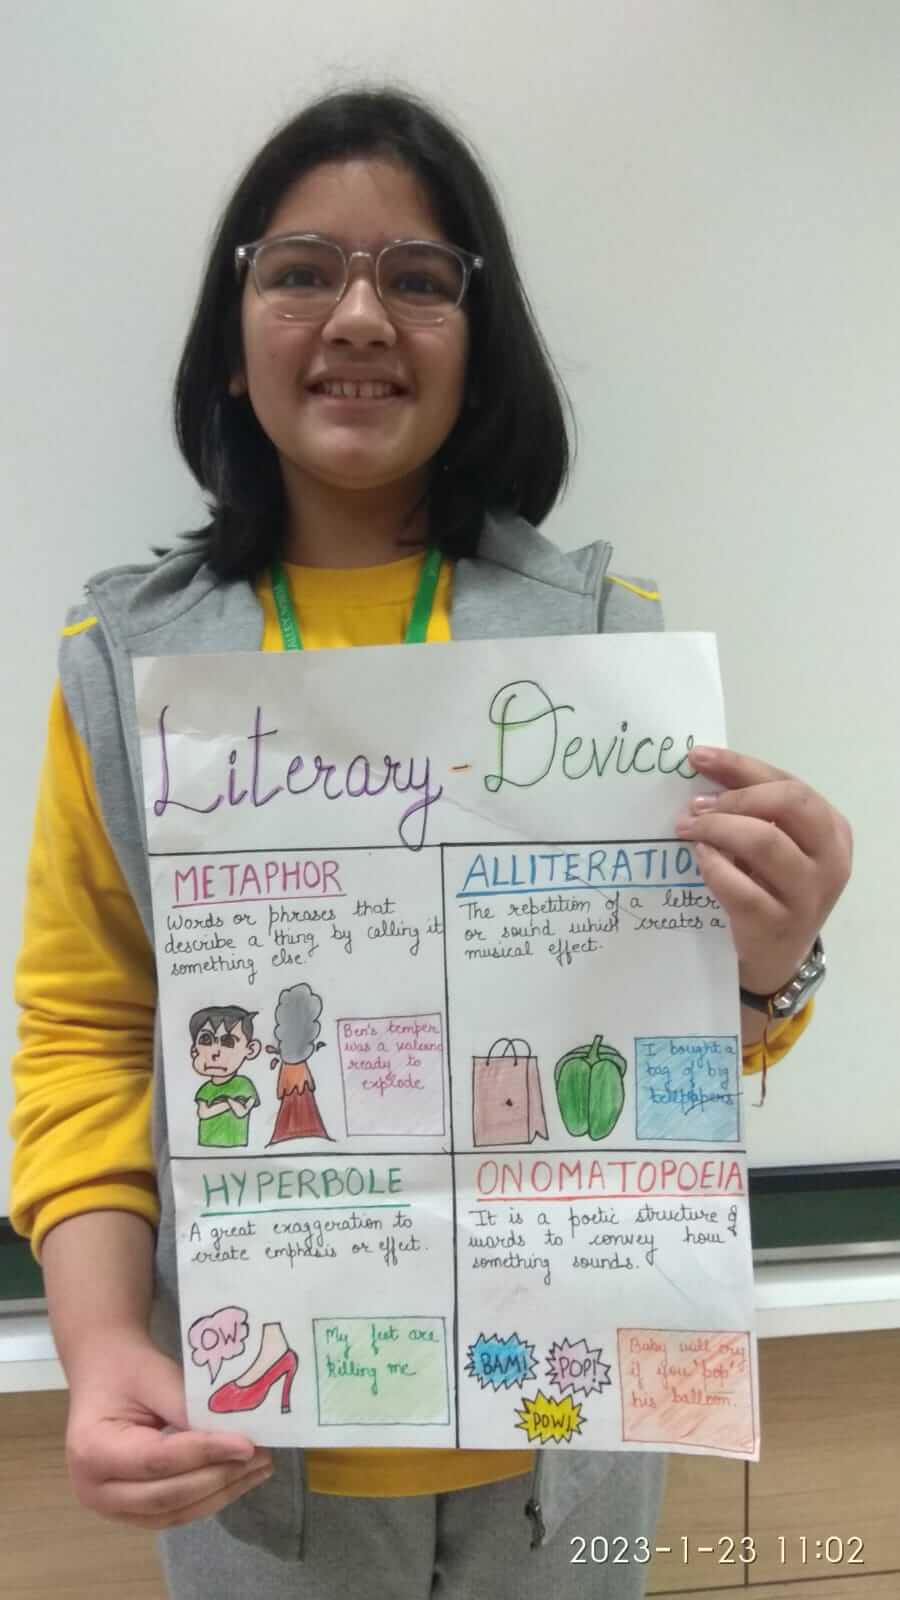 ALLEY SCH
Literary-Devices
METAPHOR
Words or phrases that
describe a thing by calling it
something else.
Ben's temper
was a volcano
ready to
explode
ALLITERATIO
The repetition of a letter
or sound which creates a
musical effect.
I bought a
bag of big
bellpapers
HYPERBOLE
A great exaggeration to
create emphasis or effect.
OW
My feet are
killing me
ONOMATOPOEIA
It is a poetic structure of
words to convey how
something sounds.
BAM!
POP!
POW!
Baby will cry
if you 'pob'
his balloon.
2023-1-23 11:02